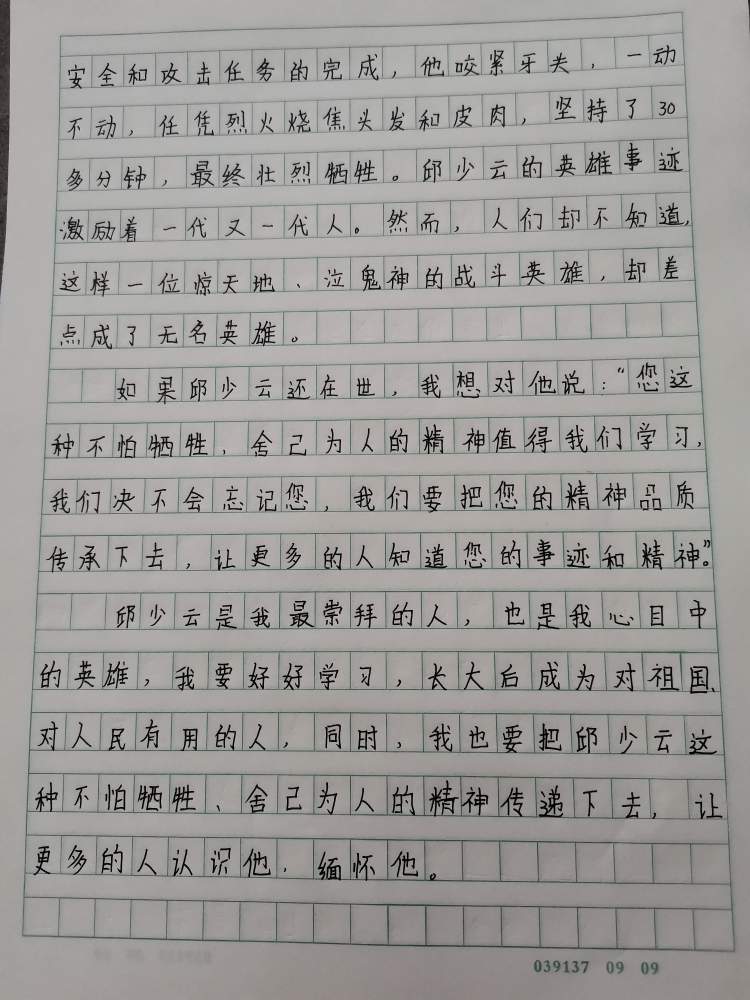 安全和攻击任务的完成，他咬紧牙关，一动
不动，任凭烈火烧焦头发和皮肉，坚持了30
多分钟，最终壮烈牺牲。邱少云的英雄事迹
激励着一代又一代人。然而，人们却不知道，
这样一位惊天地、泣鬼神的战斗英雄，却差
点成了无名英雄。
如果邱少云还在世，我想对他说：“您这
种不怕牺牲、舍己为人的精神值得我们学习，
我们决不会忘记您，我们要把您的精神品质
传承下去，让更多的人知道您的事迹和精神。”
邱少云是我最崇拜的人，也是我心目中
的英雄，我要好好学习，长大后成为对祖国、
对人民有用的人，同时，我也要把邱少云这
种不怕牺牲、舍己为人的精神传递下去，让
更多的人认识他、缅怀他。
039137 09 09